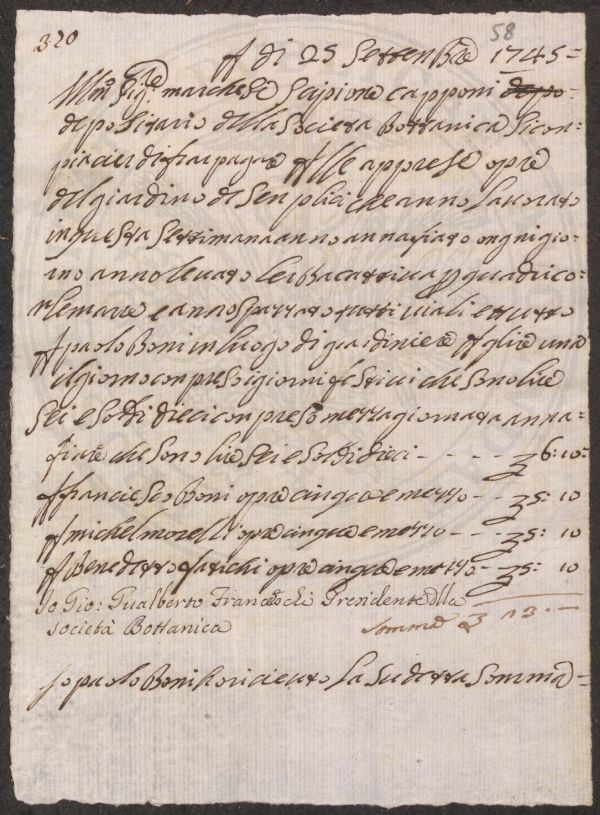 320
58
A di 25 Settenbre 1745 =
Illmo Sigre marchese Scipione Capponi depo-
depositario della Società Bottanica Si con-
piacierdi far pagare Alle apprese opre
del giardino de Senplici che anno lavorato
in questa Settimana anno annafiato ongni gio-
rno anno levato le rbacattiva p quadri co-
le mare e anno spazzato tutti viali e tutto
A paolo Boni in luogo di giardiniere A glire una
il giorno conpreso i giorni festivi che sono lire
sei e soldi dieci conpreso mezza giornata anna-
fiare che sono lire sei e soldi dieci - - - - 6:10:
A franciesco Boni opre cinque e mezzo - - 5: 10
A michel morelli opre cinque e mezzo - - - 5: 10
A Benedetto farichi opre cinque e mezzo - - 5: 10
Io Gio: Gualberto Franceschi Presidente dlla
Società Bottanica
Somma 23 —
Io paolo Boni ho ricieuto la sudetta Somma =